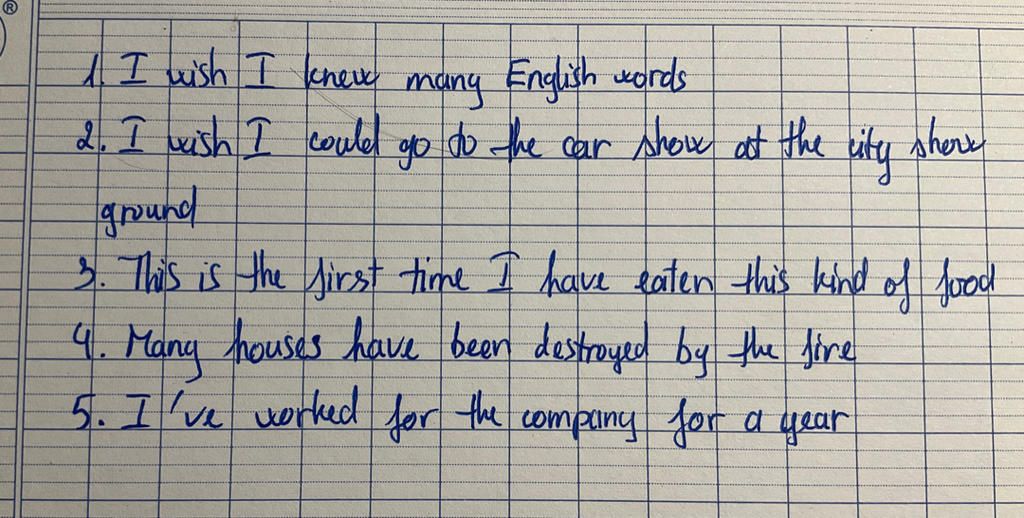 ®
1. I wish I knew many English words
2. I wish I could go to the car show at the city show
ground
3. This is the first time I have eaten this kind of food
4. Many houses have been destroyed by the fire
5. I've worked for the company for a year